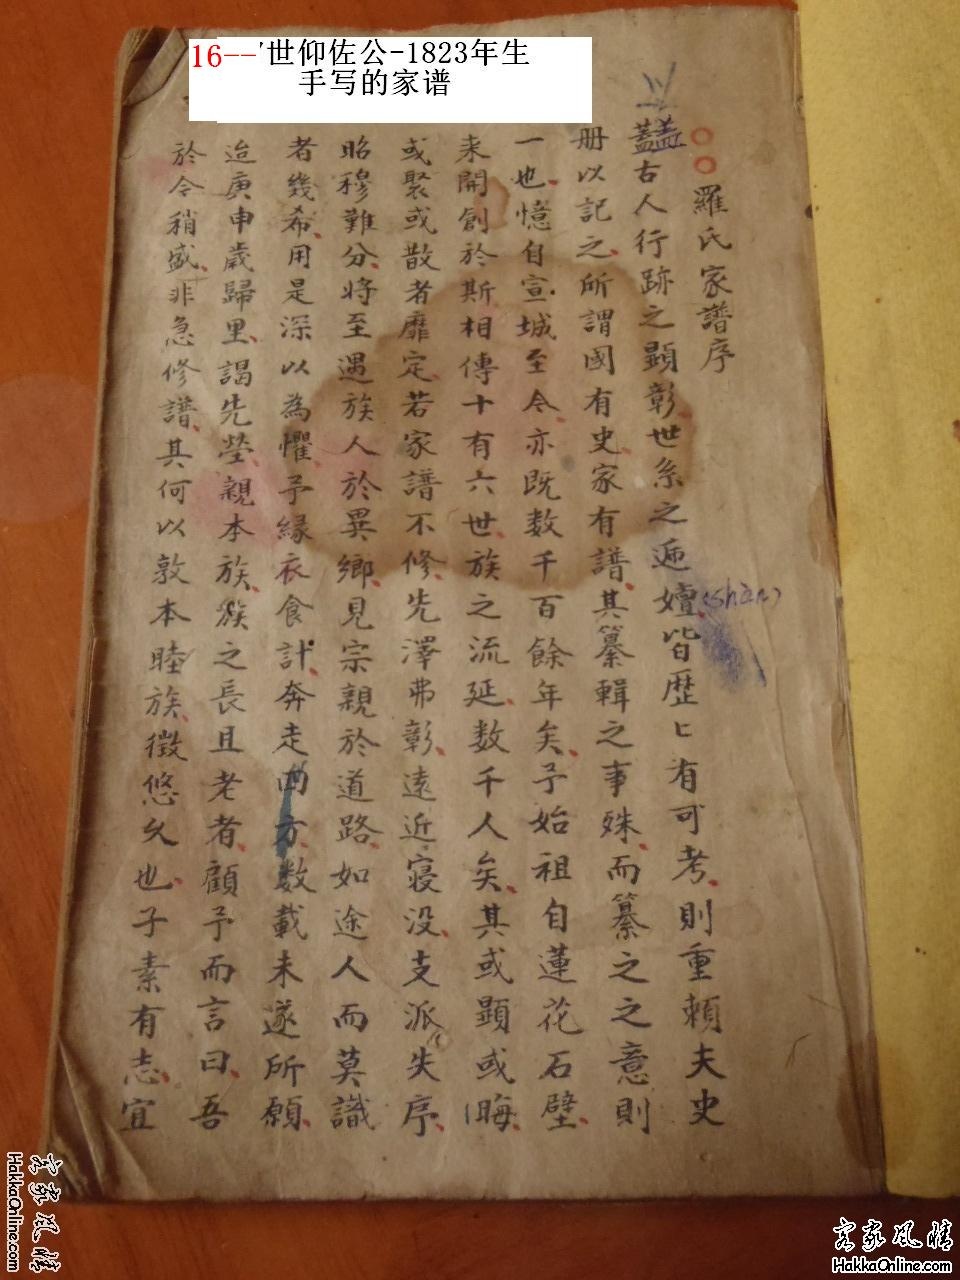 16--世仰佐公-1823年生
手写的家谱
羅氏家譜序
蓋古人行跡之顕彰世系之遞嬗皆歷匕有可考則重賴夫史
(shàn)
册以記之所謂國有史家有譜其纂輯之事殊而纂之之意則
一也憶自宣城至今亦既数千百餘年矣予始祖自蓮花石壁
来開創於斯相傳十有六世族之流延数千人矣其或顕或晦
或聚或散者靡定若家譜不修先澤弗彰遠近寝没支派失序
昭穆難分将至遇族人於異鄉見宗親於道路如途人而莫識
者幾希用是深以為懼予緣衣食計奔走四方数載未遂所願
迨庚申歲歸里謁先塋親本族族之長且老者顧予而言曰吾
於今稍盛非急修譜其何以敦本睦族徵悠久也子素有志宜
客家风情
HakkaOnline.com
客家风情
HakkaOnline.com